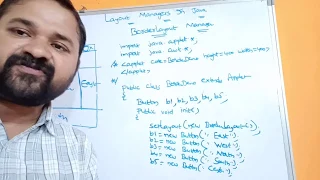 Layout Managers In Java
BorderLayout Manager
import java.applet.*;
import java.awt.*;
/* <applet code=BorderDemo height=400 width=400>
</applet>
Public class BorderDemo extends Applet
{
Button b1, b2, b3, b4, b5;
Public void init()
{
setLayout(new BorderLayout());
b1 = new Button("East");
b2 = new Button("West");
b3 = new Button("North");
b4 = new Button("South");
b5 = new Button("
East